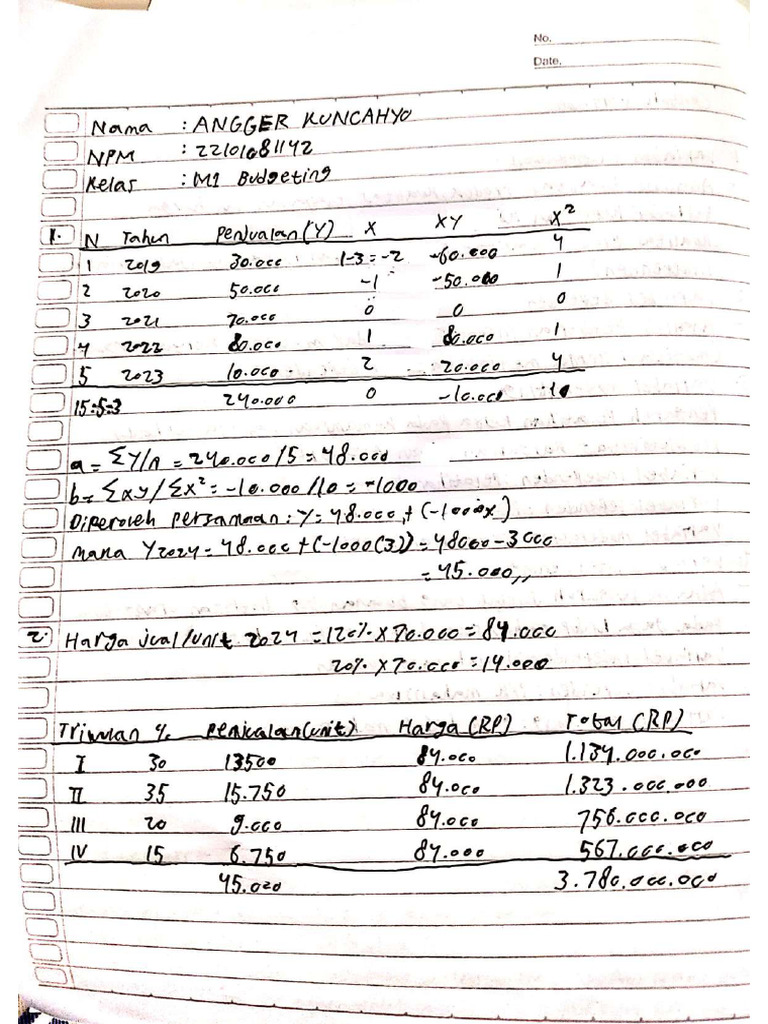 No.
Date.
Nama : ANGGER KUNCAHYO
NPM : 22101081142
Kelas : M1 Budgeting
1. N Tahun Penjualan (Y) X XY X²
1 2019 30.000 1-3=-2 -60.000 4
2 2020 50.000 -1 -50.000 1
3 2021 70.000 0 0 0
4 2022 80.000 1 80.000 1
5 2023 10.000 2 20.000 4
15:5=3 240.000 0 -10.000 10
a = ΣY/n = 240.000/5 = 48.000
b = Σxy/Σx² = -10.000/10 = -1000
Diperoleh Persamaan : Y = 48.000 + (-1000x)
maka Y2024 = 48.000 + (-1000(3)) = 48000 - 3000
= 45.000,,
2. Harga jual/unit 2024 = 120% x 70.000 = 84.000
20% x 70.000 = 14.000
Triwulan % Penjualan (unit) Harga (RP) Total (RP)
I 30 13500 84.000 1.134.000.000
II 35 15.750 84.000 1.323.000.000
III 20 9.000 84.000 756.000.000
IV 15 6.750 84.000 567.000.000
45.000 3.780.000.000